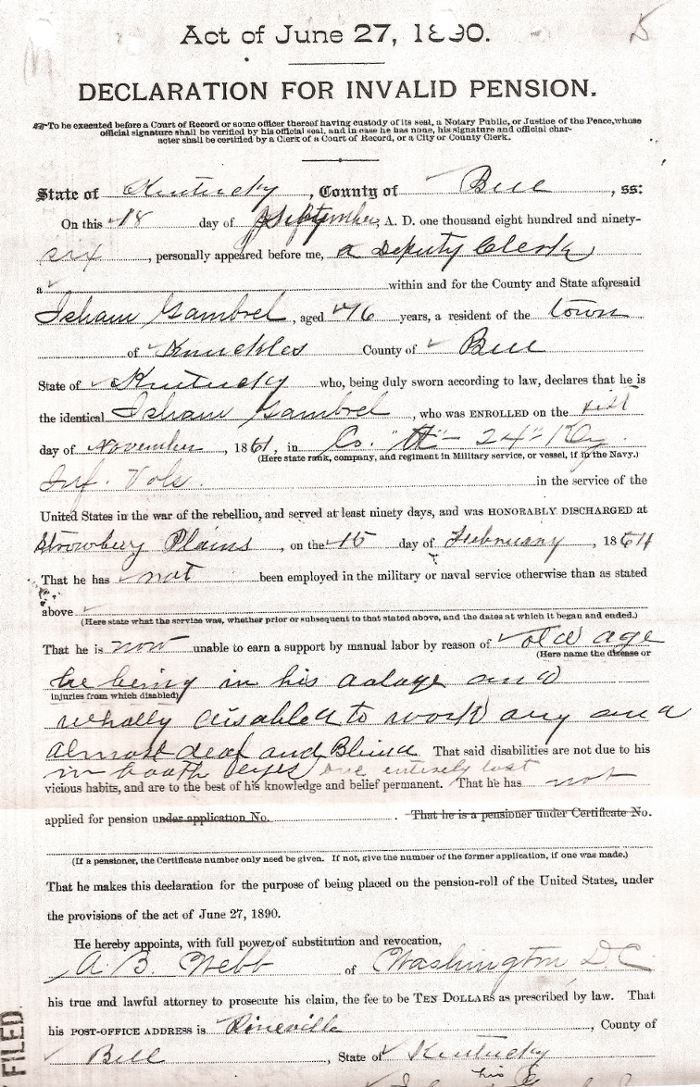 Act of June 27, 1890.
DECLARATION FOR INVALID PENSION.
To be executed before a Court of Record or some officer thereof having custody of its seal, a Notary Public, or Justice of the Peace, whose
official signature shall be verified by his official seal, and in case he has none, his signature and official char-
acter shall be certified by a Clerk of a Court of Record, or a City or County Clerk.
State of Kentucky, County of Bell, ss:
On this 18 day of September, A. D. one thousand eight hundred and ninety-
six, personally appeared before me, a Deputy Clerk
a within and for the County and State aforesaid
Isham Gambrel, aged 76 years, a resident of the town
of Knuckles County of Bell
State of Kentucky who, being duly sworn according to law, declares that he is
the identical Isham Gambrel, who was ENROLLED on the
day of November, 1861, in Co. "H" 24" Ky
(Here state rank, company, and regiment in Military service, or vessel, if in the Navy.)
Inf. Vols. in the service of the
United States in the war of the rebellion, and served at least ninety days, and was HONORABLY DISCHARGED at
Strowbury Plains, on the 15 day of February, 1864
That he has not been employed in the military or naval service otherwise than as stated
above
(Here state what the service was, whether prior or subsequent to that stated above, and the dates at which it began and ended.)
That he is now unable to earn a support by manual labor by reason of old age
(Here name the disease or
he being in his and
injuries from which disabled)
wholly disabled to work any and
almost deaf and Blind That said disabilities are not due to his
in booth eyes one entirely lost
vicious habits, and are to the best of his knowledge and belief permanent. That he has not
applied for pension under application No. . That he is a pensioner under Certificate No.
(If a pensioner, the Certificate number only need be given. If not, give the number of the former application, if one was made.)
That he makes this declaration for the purpose of being placed on the pension-roll of the United States, under
the provisions of the act of June 27, 1890.
He hereby appoints, with full power of substitution and revocation,
A. B. Webb of Washington D.C.
his true and lawful attorney to prosecute his claim, the fee to be TEN DOLLARS as prescribed by law. That
his POST-OFFICE ADDRESS is Pineville, County of
Bell, State of Kentucky
his
FILED.